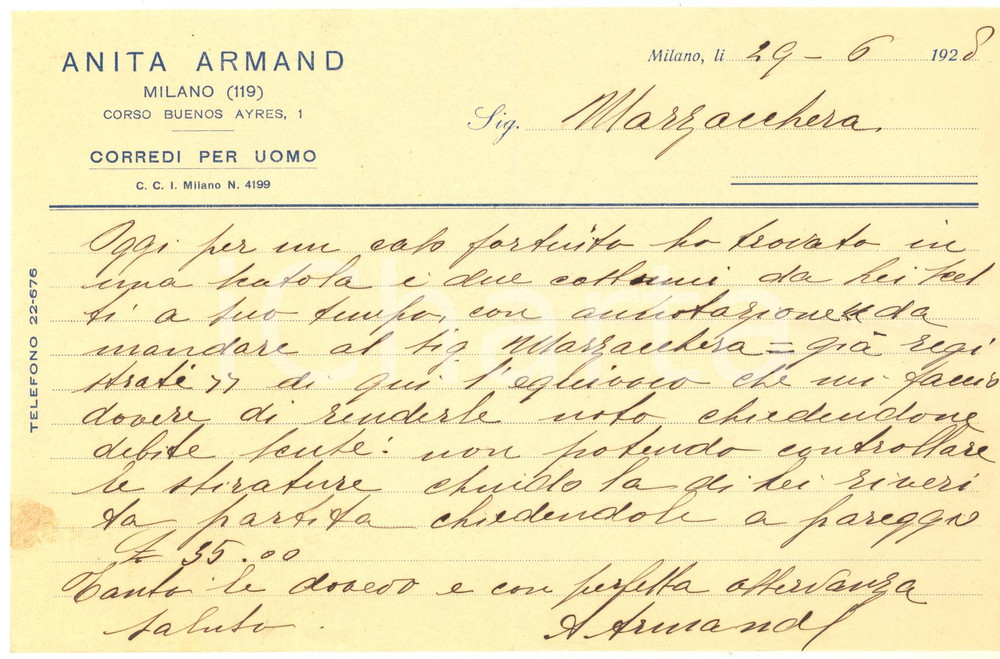 ANITA ARMAND
MILANO (119)
CORSO BUENOS AYRES, 1
CORREDI PER UOMO
C. C. I. Milano N. 4199
TELEFONO 22-676
Milano, li 29 - 6 1928
Sig. Marzacchera
Oggi per un caso fortuito ho trovato in
una scatola i due costumi da Lei scel
ti a suo tempo, con annotazione "da
mandare al sig Marzacchera = già regi
strati" di qui l'equivoco che mi faccio
dovere di renderle noto chiedendone
debite scuse: non potendo controllare
le stirature chiudo la di Lei riveri
ta partita chiedendole a pareggio
£ 35.00
Tanto le dovevo e con perfetta osservanza
saluto.
A Armand
iCharta